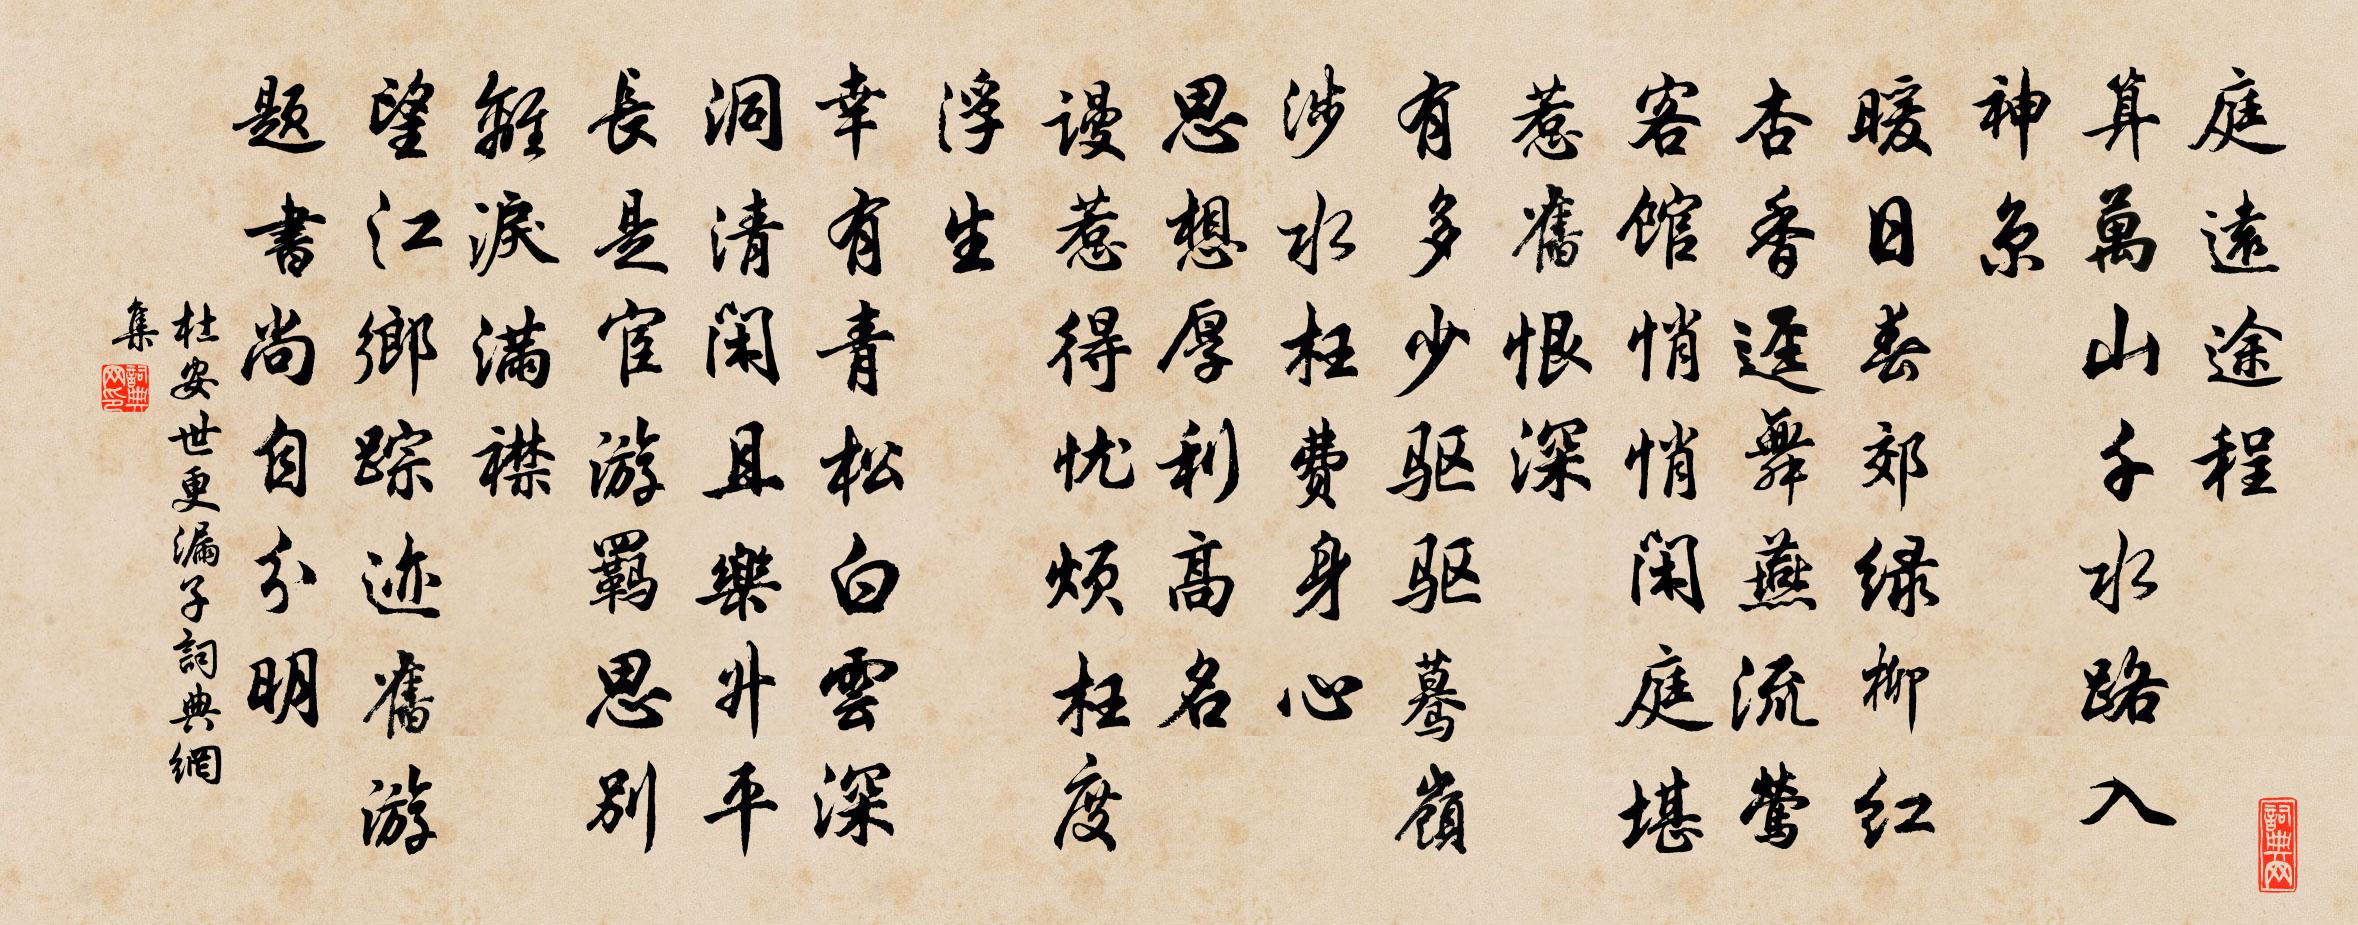 庭遠途程
算萬山千水路入
神京
暖日春郊绿柳红
杏香逕舞燕流莺
客馆悄悄闲庭堪
惹舊恨深
有多少驱驱蓦嶺
涉水枉費身心
思想厚利高名
谩惹得忧烦枉度
浮生
幸有青松白雲深
洞清闲且樂升平
長是宦游羁思别
離淚满襟
望江鄉踪迹舊游
题書尚自分明
杜安世更漏子詞典網
集
詞典网印
詞典网